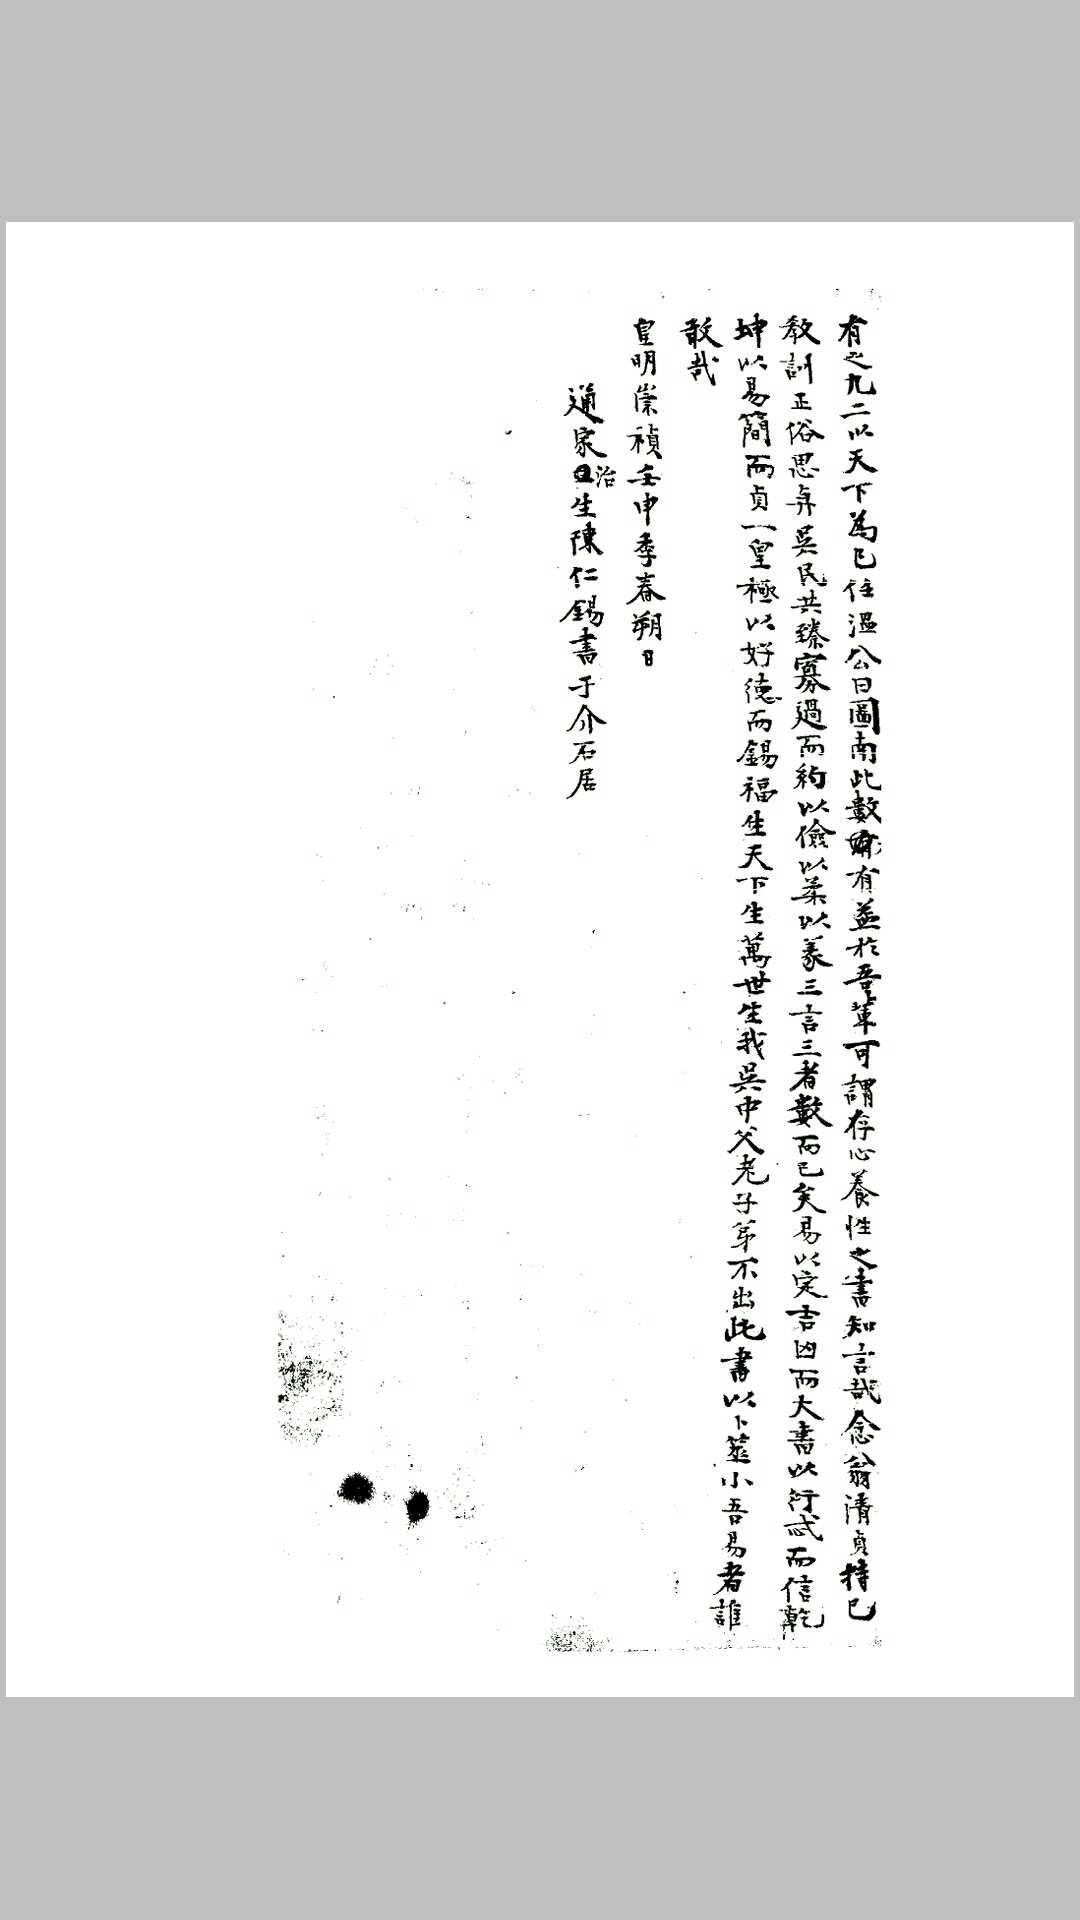 有之九二以天下為已任溫公曰圖南此數學有益於吾輩可謂存心養性之書知言哉念翁清貞持已
教訓正俗思與吳民共臻寡過而約以儉以柔以義三言三者數而已矣易以定吉凶而大書以行忒而信乾
坤以易簡而貞一皇極以好德而錫福生天下生萬世生我吳中父老子弟不出此書以卜筮小吾易者誰
敢哉
皇明崇禎壬申季春朔日
通家治生陳仁錫書于介石居